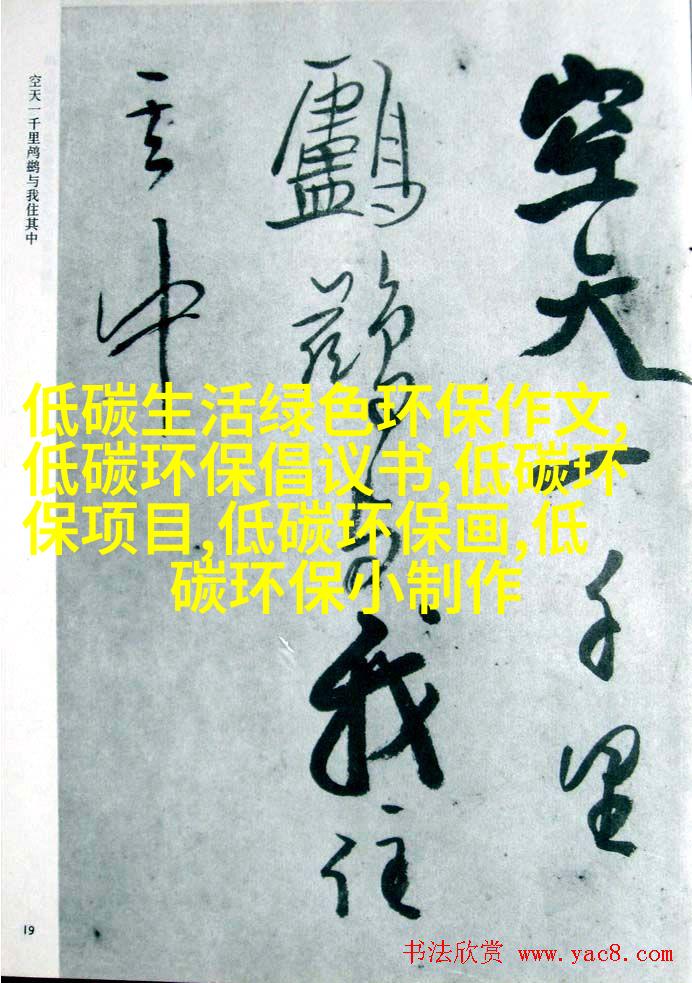 空天一千里
鸬鹚与我住
其中
空天一千里鸬鹚与我住其中
低碳生活绿色环保作文,
低碳环保倡议书,低碳环
保项目,低碳环保画,低
碳环保小制作
19
书法欣赏 www.yac8.com